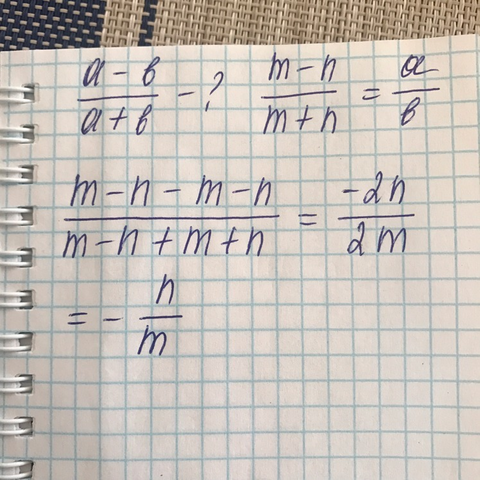 (a - b)/(a + b) - ? (m - n)/(m + n) = a/b
(m - n - m - n)/(m - n + m + n) = (-2n)/(2m)
= - n/m